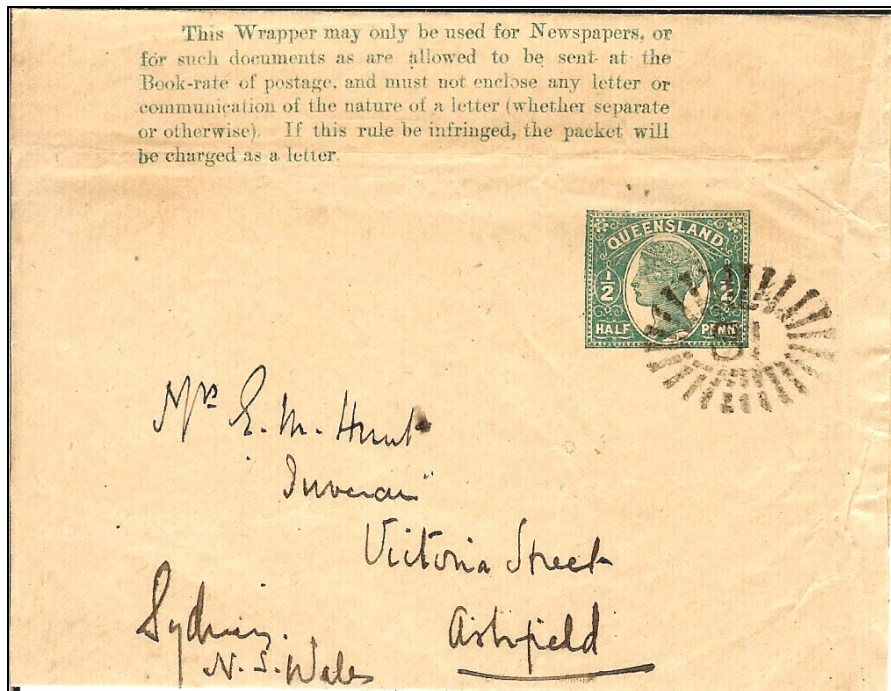 This Wrapper may only be used for Newspapers, or
for such documents as are allowed to be sent at the
Book-rate of postage, and must not enclose any letter or
communication of the nature of a letter (whether separate
or otherwise). If this rule be infringed, the packet will
be charged as a letter.
QUEENSLAND
1/2 1/2
HALF PENNY
Mrs E. M. Hunt
Victoria Street
Ashfield
Sydney.
N. S. Wales